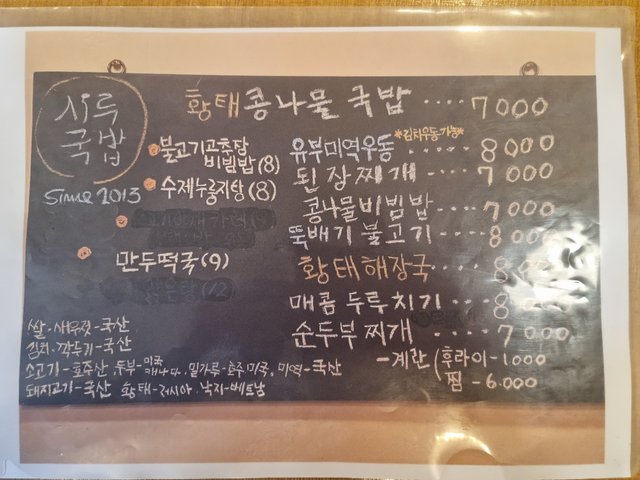 시루
국밥
Since 2013
황태콩나물국밥 ···· 7000
불고기고추장
비빔밥(8)
수제누룽지탕(8)
만두떡국(9)
*김치우동가능*
유부미역우동 ···· 8000
된장찌개 ···· 7000
콩나물비빔밥 ··· 7000
뚝배기 불고기 ···· 8000
황태해장국 ··· 8000
매콤 두루치기 ··· 8000
순두부찌개 ···· 7000
-계란 (후라이-1.000
찜-6.000
쌀·새우젓-국산
김치·깍두기-국산
소고기-호주산, 두부-미국 캐나다, 밀가루-호주미국, 미역-국산
돼지고기-국산 황태-러시아, 낙지-베트남